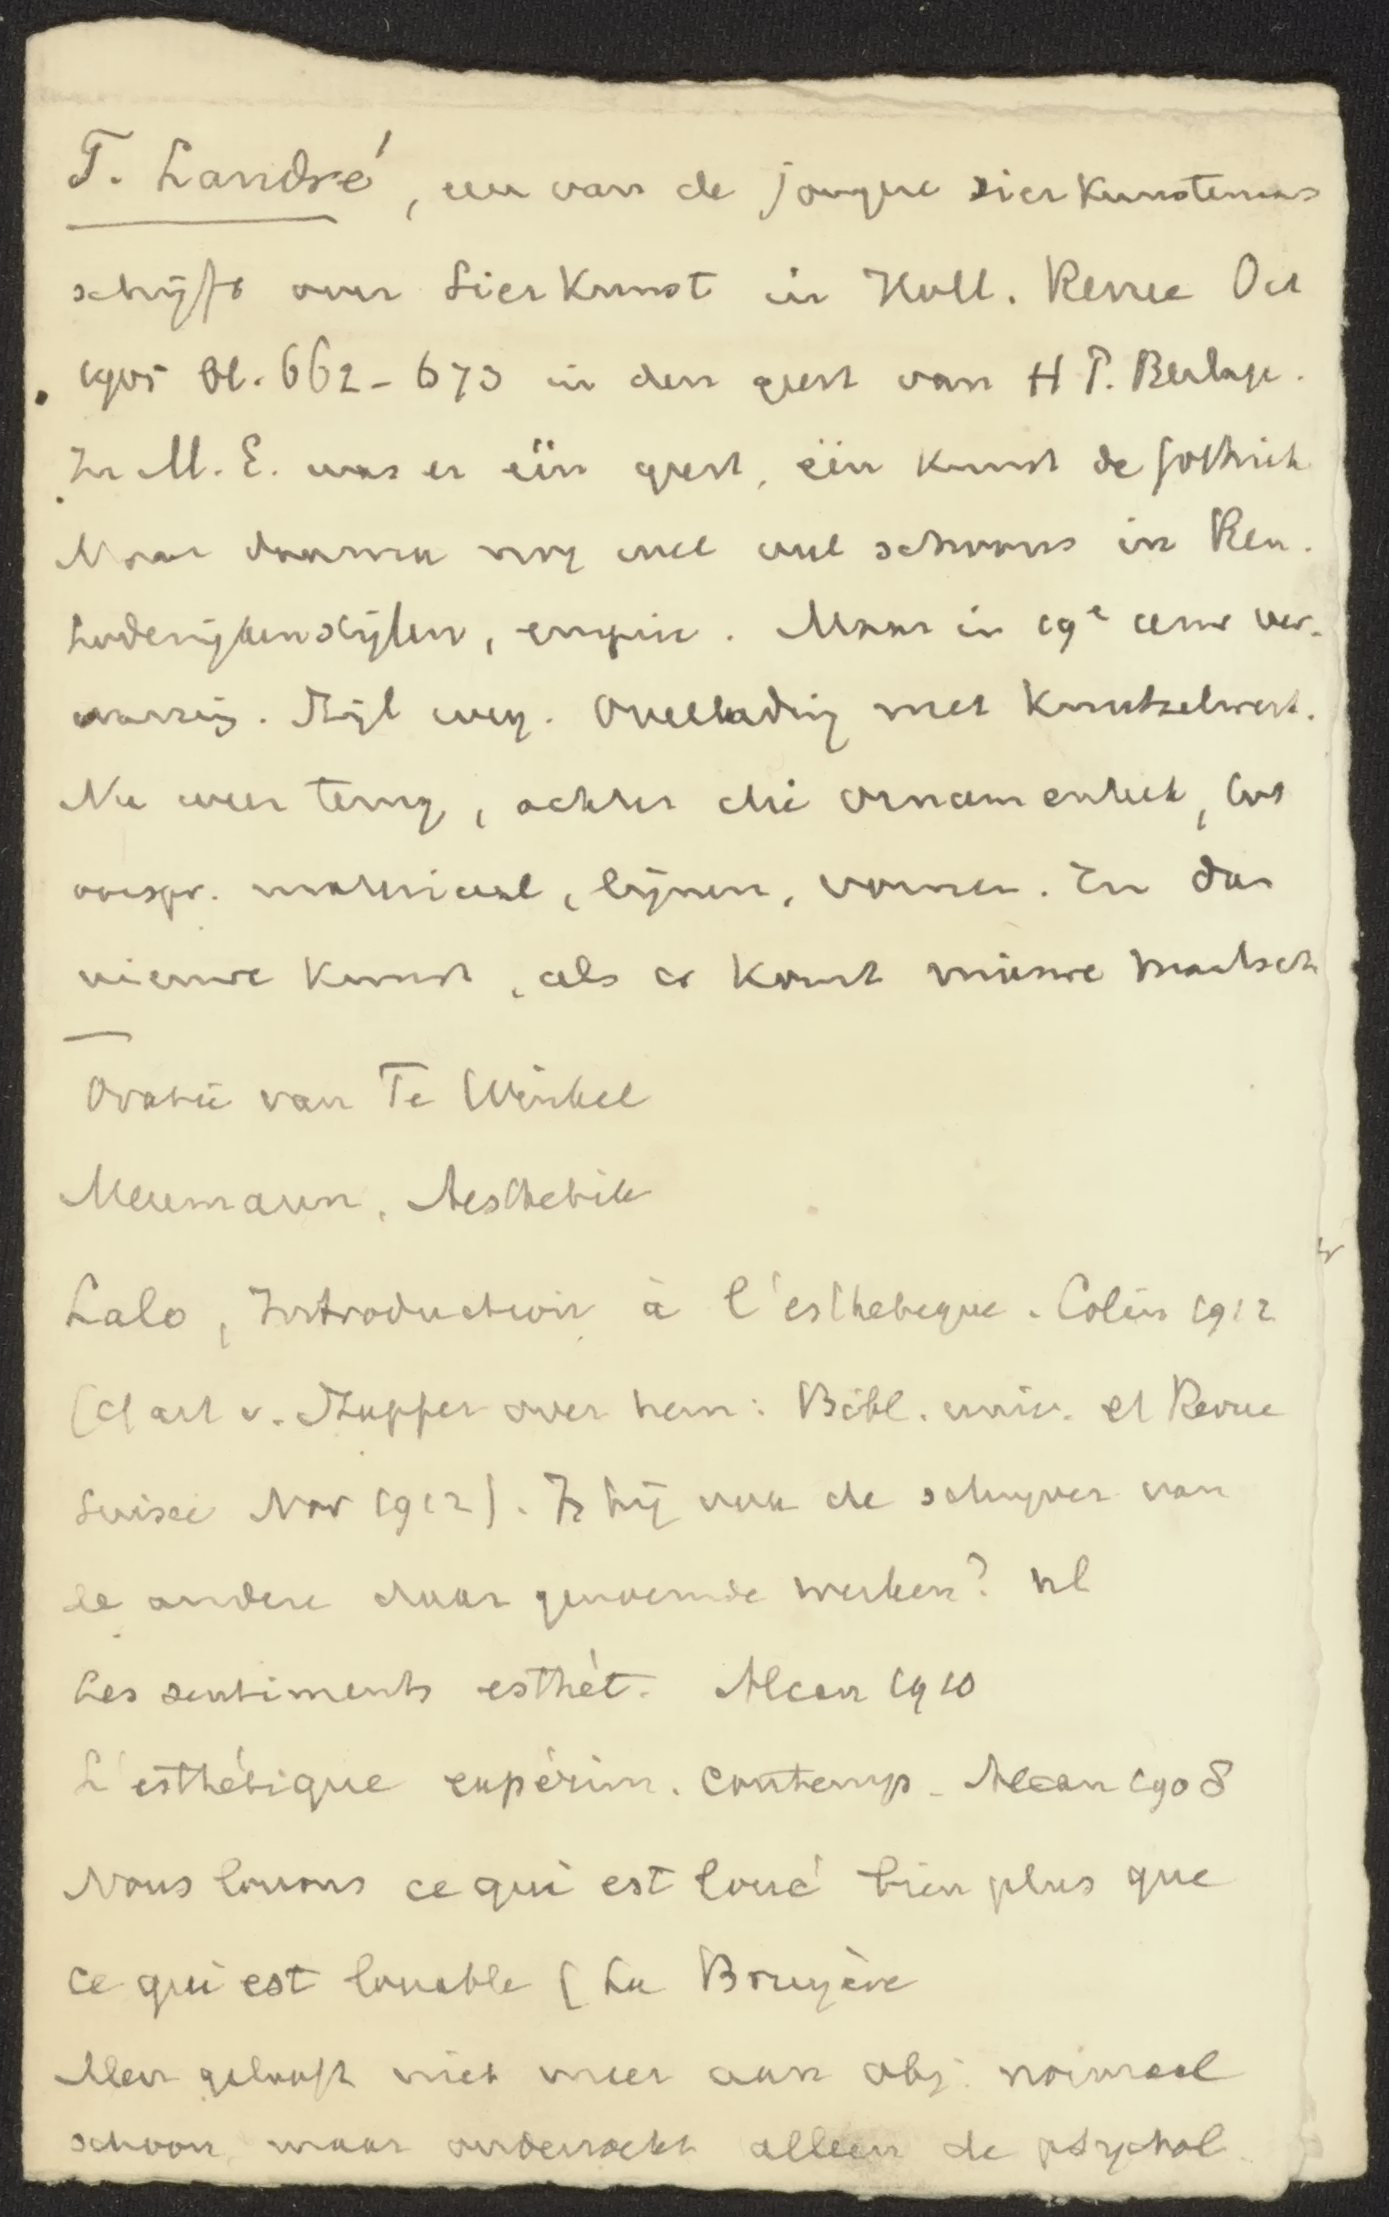 T. Landré, een van de jongere sierkunstenaars
schrijft over Sierkunst in Holl. Revue Oct
1905 bl. 662-673 in den geest van H P. Berlage.
In M. E. was er één geest, één kunst de gothiek
Maar daarna nog wel veel schoons in Ren.
Lodewijkenstijlen, empire. Maar in 19e eeuw ver-
warring. Stijl weg. Overlading met knutselwerk.
Nu weer terug, achter die ornamentiek, tot
oorspr. materiaal, lijnen, vormen. En dan
nieuwe kunst, als er komt nieuwe maatsch
Oratie van Te Winkel
Meumann, Aesthetik
Lalo, Introduction à l'esthetique. Colin 1912
(cf art v. Stapfer over hem: Bibl. univ. et Revue
Suisse Nov 1912). Is hij ook de schrijver van
de andere daar genoemde werken? nl
Les sentiments esthét. Alcan 1910
L'esthétique expérim. contemp. Alcan 1908
Nous louons ce qui est loué bien plus que
ce qui est louable (La Bruyère
Men gelooft niet meer aan obj. normaal
schoon maar onderzoekt alleen de psychol.